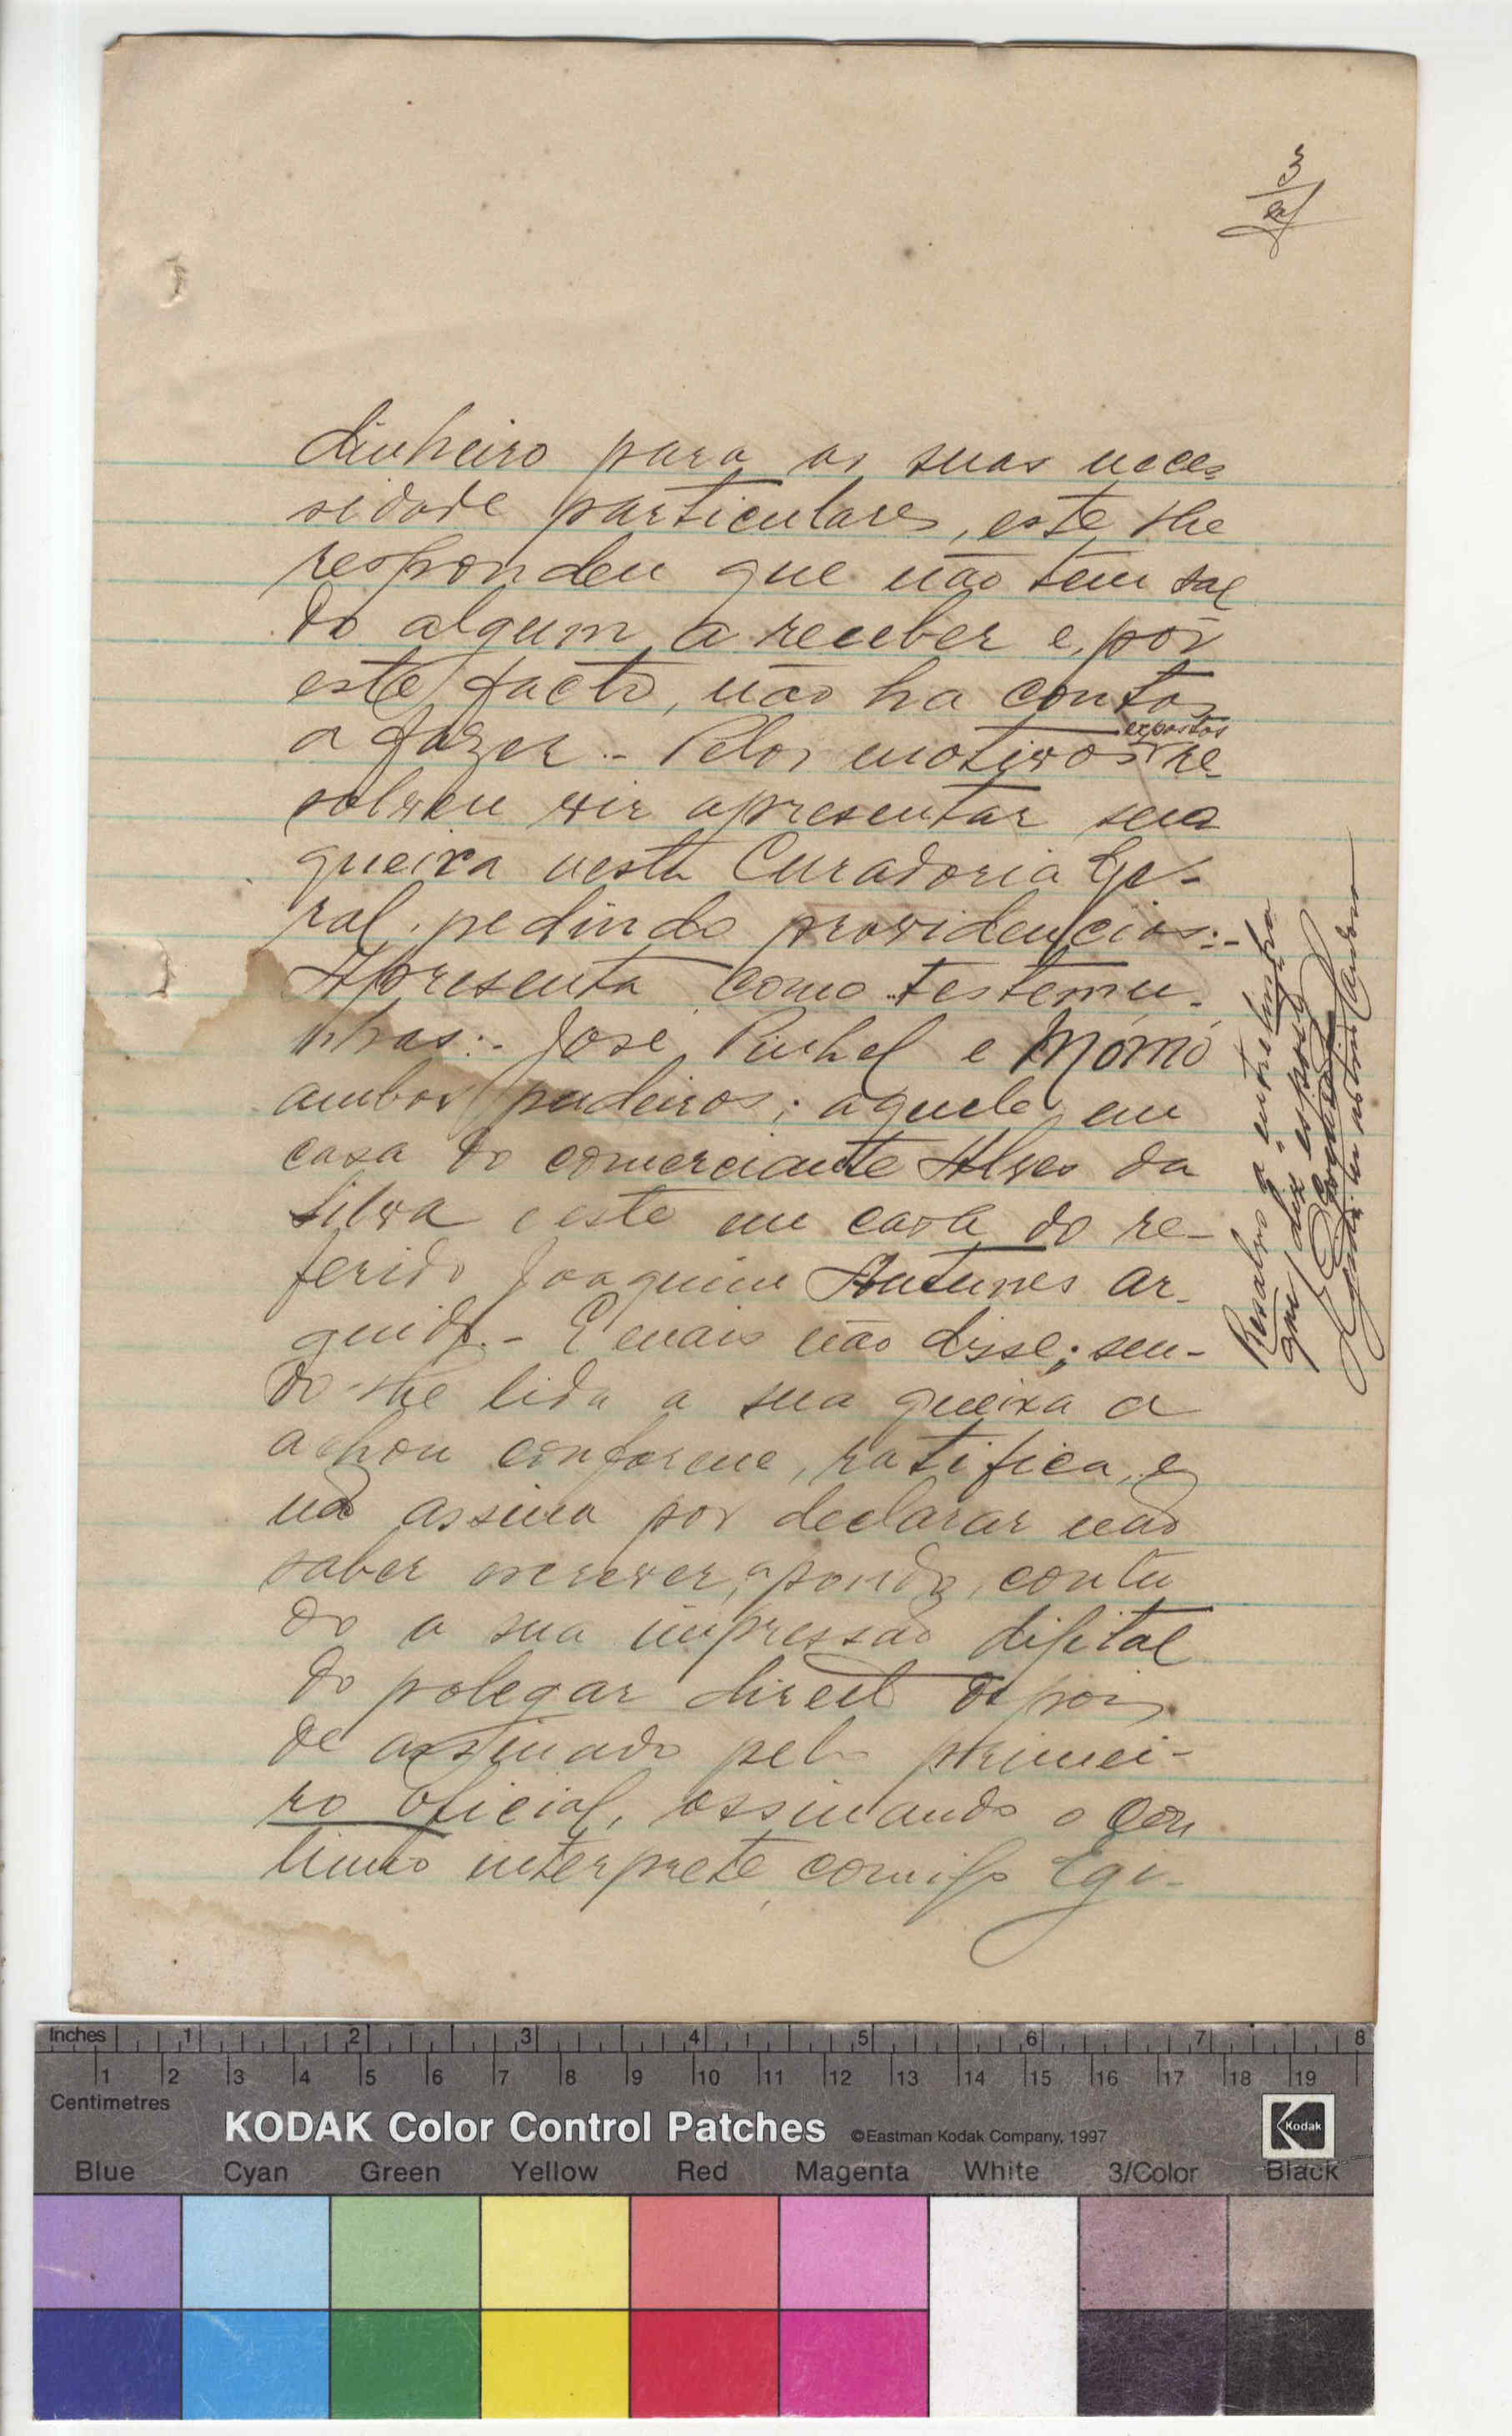 3
dinheiro para as suas neces
sidade particulares, este lhe
respondeu que não tem sal
do algum a receber e, por
este facto, não ha contas
a fazer.- Pelos motivos expostos re
solveu vir apresentar sua
queixa nesta Curadoria Ge-
ral, pedindo providencias:-
Apresenta como testemu-
nhas:- José Pinhel e Mómó
ambos padeiros; aquele em
casa do comerciante Alves da
Silva e este em casa do re-
ferido Joaquim Antunes ar-
guido.- E mais não disse; sen-
do-lhe lida a sua queixa a
achou conforme, ratifica, e
não assina por declarar não
saber escrever, apondo, contu
do a sua impressão digital
do polegar direito depois
de assinado pelo primei-
ro oficial, assinando o con
tinuo interprete comigo Egi-
Resalvo a entrelinha
que diz expostos
Inches 1 2 3 4 5 6 7 8
1 2 3 4 5 6 7 8 9 10 11 12 13 14 15 16 17 18 19
Centimetres
KODAK Color Control Patches ©Eastman Kodak Company, 1997
Kodak
Blue Cyan Green Yellow Red Magenta White 3/Color Black